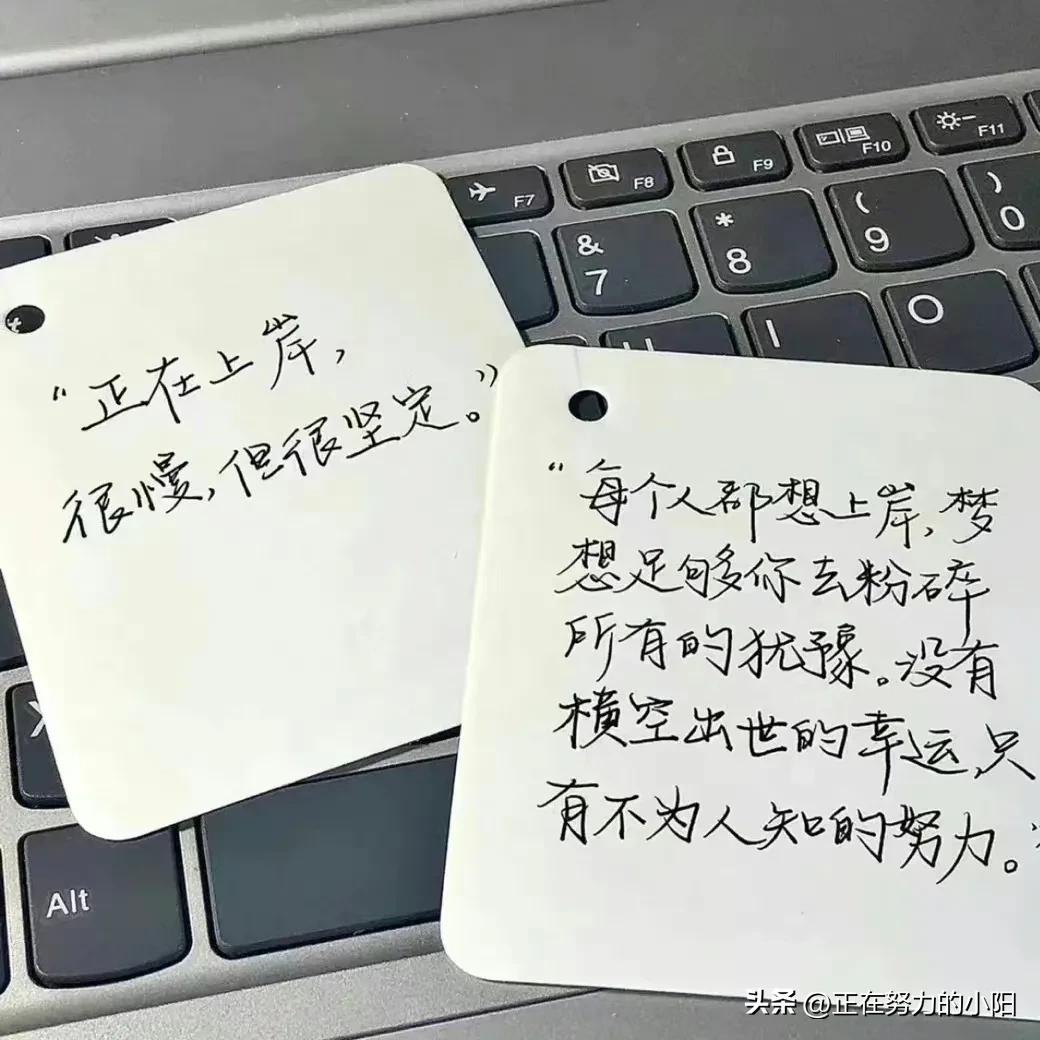 “正在上岸，
很慢，但很坚定。”
“每个人都想上岸，梦
想足够你去粉碎
所有的犹豫。没有
横空出世的幸运，只
有不为人知的努力。”
F7
F8
F9
F10
F11
&
7
*
8
(
9
)
0
U
I
O
X
Alt
头条 @正在努力的小阳